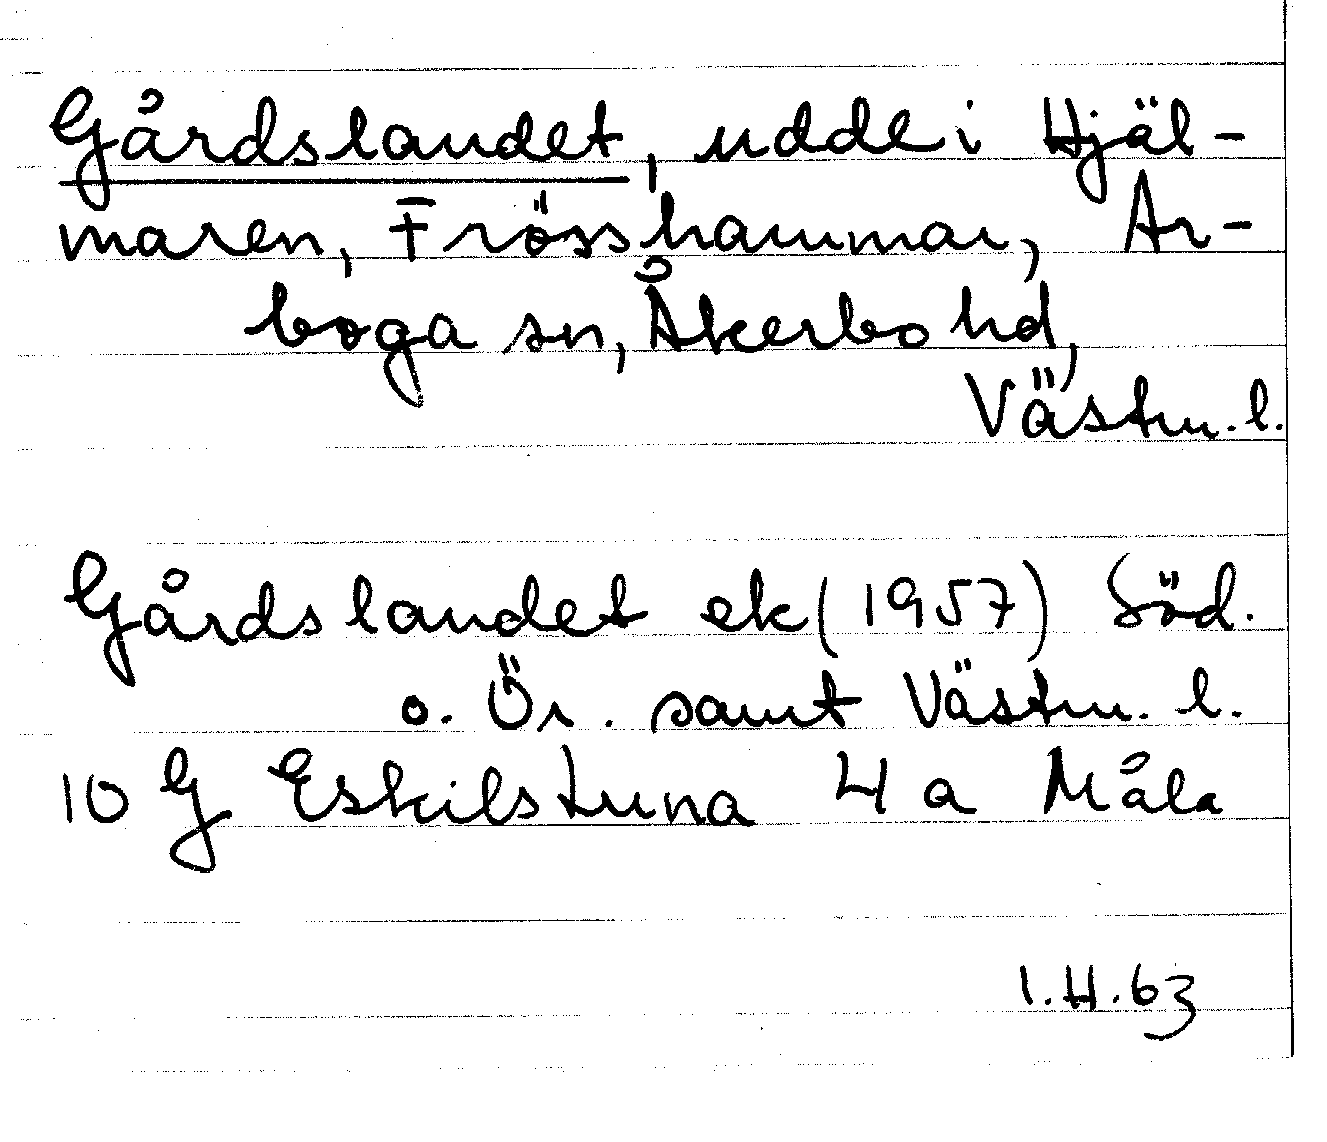 Gårdslandet, udde i Hjäl-
maren, Frösshammar, Ar-
boga sn, Åkerbo hd,
Västm. l.
Gårdslandet ek (1957) Söd.
o. Ör. samt Västm. l.
10 G Eskilstuna 4 a Måla
I.H.63